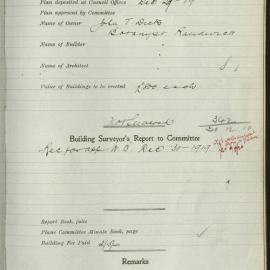 Plan deposited at Council Offices Dec 29 - 19
Plan approved by Committee
Name of Owner John T Dick
Botany St Randwick
Name of Builder
Name of Architect
Value of Buildings to be erected £800 each
Building Surveyor's Report to Committee
Rec for app W.B. Dec 30 - 1919
Report Book, folio
Plans Committee Minute Book, page
Building Fee Paid
Remarks